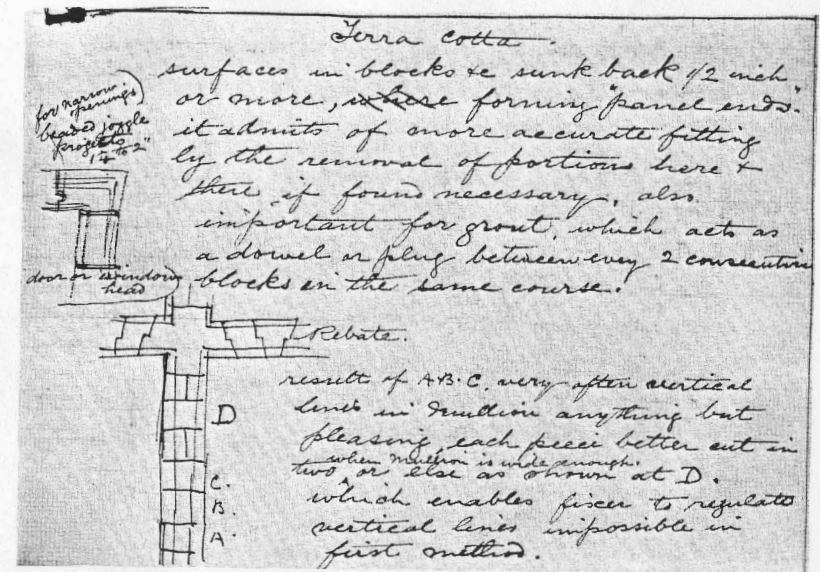 Terra Cotta.
surfaces in blocks &c sunk back 1/2 inch
or more, where forming "panel ends".
it admits of more accurate fitting
by the removal of portions here &
there if found necessary, also
important for grout, which acts as
a dowel or plug between every 2 consecutive
blocks in the same course.
for narrow
openings
beaded joggle
projects
1 1/4" to 2"
door or window
head
Rebate.
result of A.B.C. very often vertical
lines in mullion anything but
pleasing, each piece better cut in
when mullion is wide enough.
two or else as shown at D.
which enables fixer to regulate
vertical lines impossible in
first method.
D
C.
B.
A.